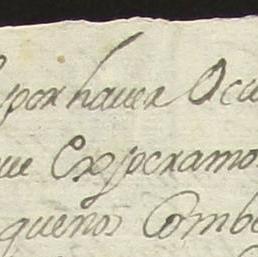 por haver Ocu
ue Experamos
queños Combo